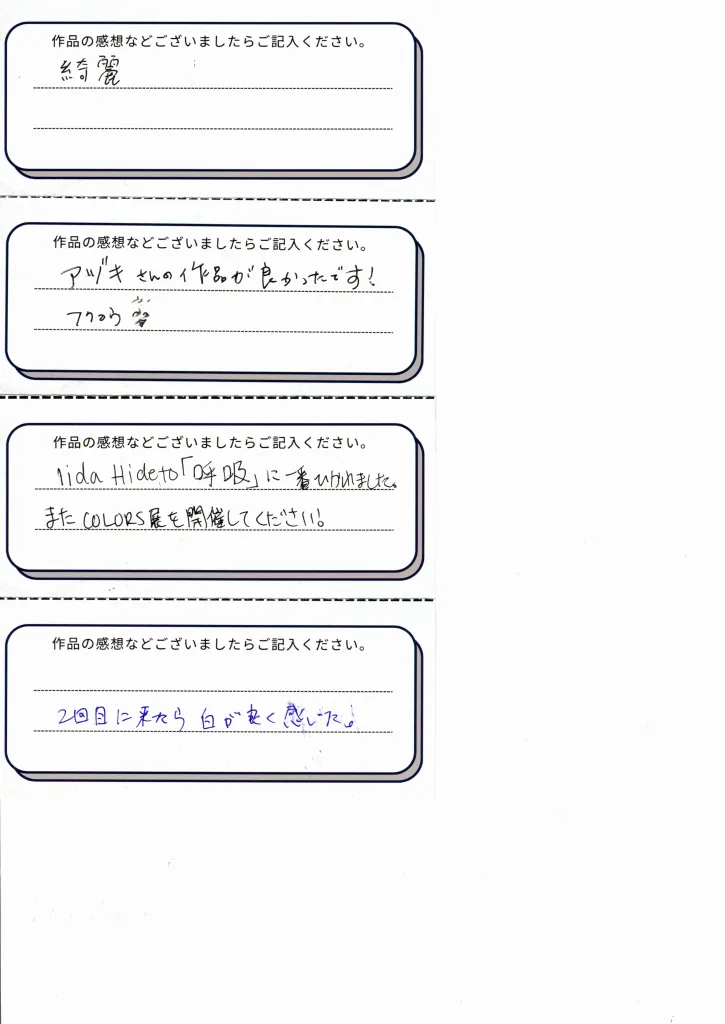 作品の感想などございましたらご記入ください。
綺麗
作品の感想などございましたらご記入ください。
アヅキさんの作品が良かったです!
フクロウ
作品の感想などございましたらご記入ください。
Iida Hideto「呼吸」に一番ひかれました。
またCOLORS展を開催してください!
作品の感想などございましたらご記入ください。
2回目に来たら白が良く感じた。